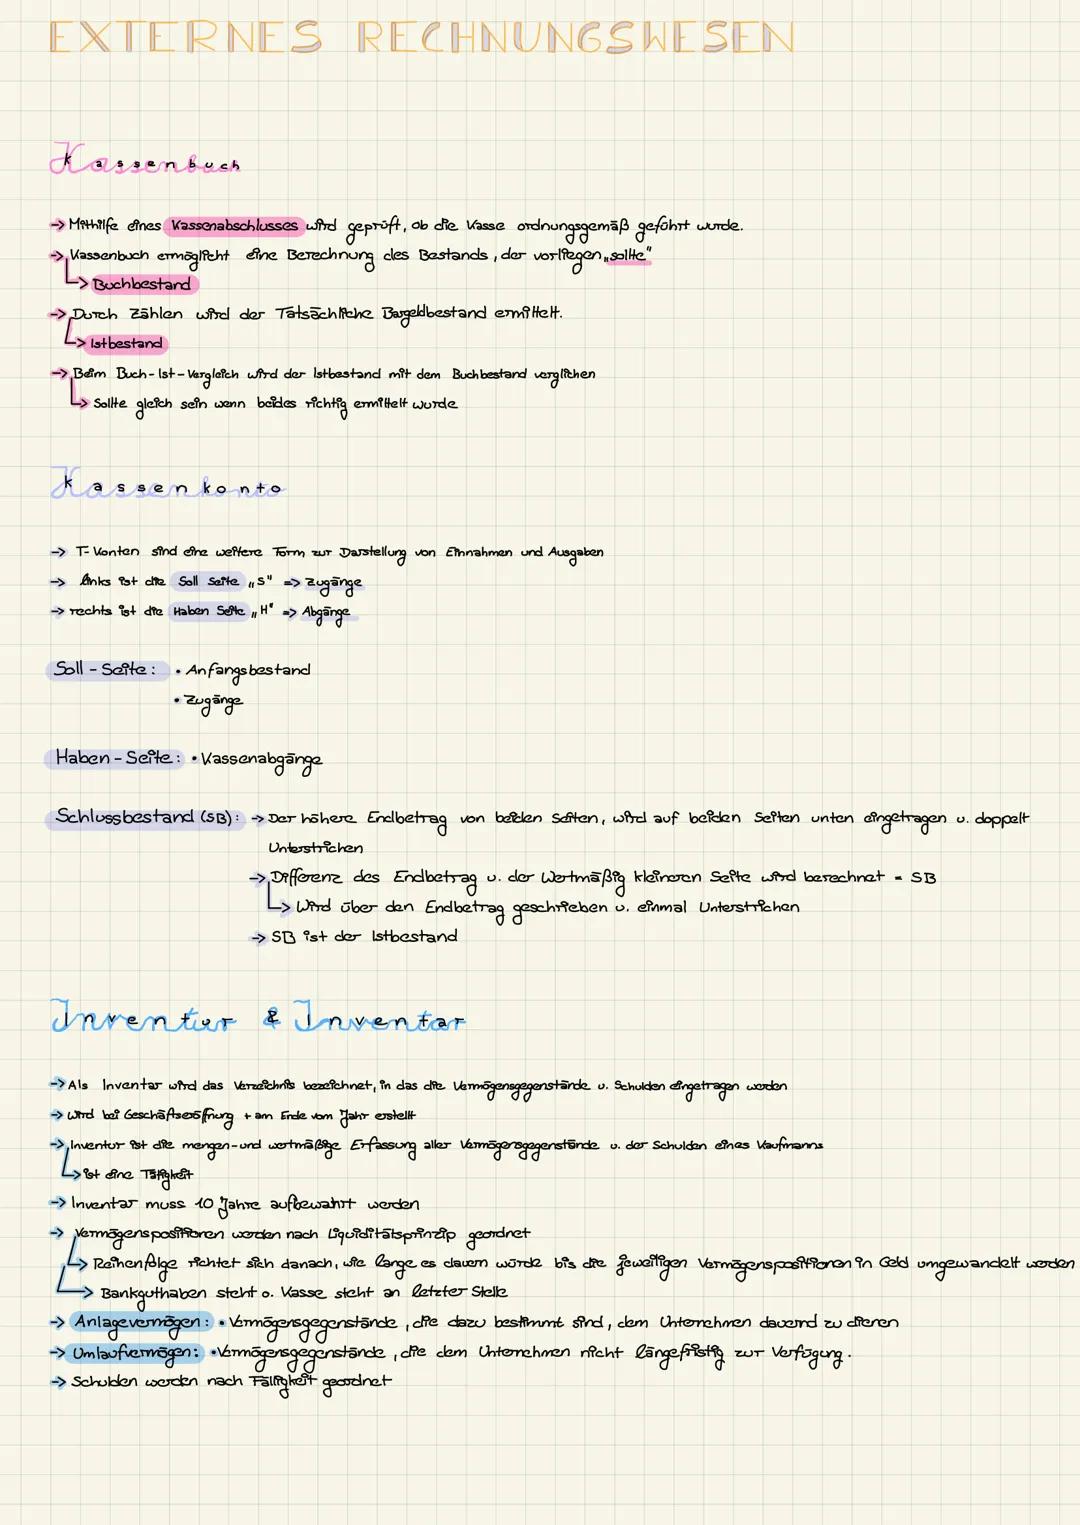 EXTERNES RECHNUNGSWESEN
Kassenbuch
→ Mithilfe eines Kassenabschlusses wird geprüft, ob die Kasse ordnungsgemäß geführt wurde.
→ Kassenbuch ermöglicht eine Berechnung des Bestands, der vorliegen „sollte"
↳ Buchbestand
→ Durch Zählen wird der Tatsächliche Bargeldbestand ermittelt.
↳ Istbestand
→ Beim Buch-Ist-Vergleich wird der Istbestand mit dem Buchbestand verglichen
↳ Sollte gleich sein wenn beides richtig ermittelt wurde
Kassenkonto
→ T-Konten sind eine weitere Form zur Darstellung von Einnahmen und Ausgaben
→ links ist die Soll Seite „S" => Zugänge
→ rechts ist die Haben Seite „H" => Abgänge
Soll-Seite: • Anfangsbestand
• Zugänge
Haben-Seite: • Kassenabgänge
Schlussbestand (SB): → Der höhere Endbetrag von beiden Seiten, wird auf beiden Seiten unten eingetragen u. doppelt
Unterstrichen
→ Differenz des Endbetrag u. der Wertmäßig kleineren Seite wird berechnet = SB
↳ Wird über den Endbetrag geschrieben u. einmal Unterstrichen
→ SB ist der Istbestand
Inventur & Inventar
→ Als Inventar wird das Verzeichnis bezeichnet, in das die Vermögensgegenstände u. Schulden eingetragen werden
→ wird bei Geschäftseröffnung + am Ende vom Jahr erstellt
→ Inventur ist die mengen-und wertmäßige Erfassung aller Vermögensgegenstände u. der Schulden eines Kaufmanns
↳ ist eine Tätigkeit
→ Inventar muss 10 Jahre aufbewahrt werden
→ Vermögenspositionen werden nach Liquiditätsprinzip geordnet
↳ Reihenfolge richtet sich danach, wie lange es dauern würde bis die jeweiligen Vermögenspositionen in Geld umgewandelt werden
↳ Bankguthaben steht o. Kasse steht an letzter Stelle
→ Anlagevermögen: • Vermögensgegenstände, die dazu bestimmt sind, dem Unternehmen dauernd zu dienen
→ Umlaufvermögen: • Vermögensgegenstände, die dem Unternehmen nicht längefristig zur Verfügung.
→ Schulden werden nach Fälligkeit geordnet